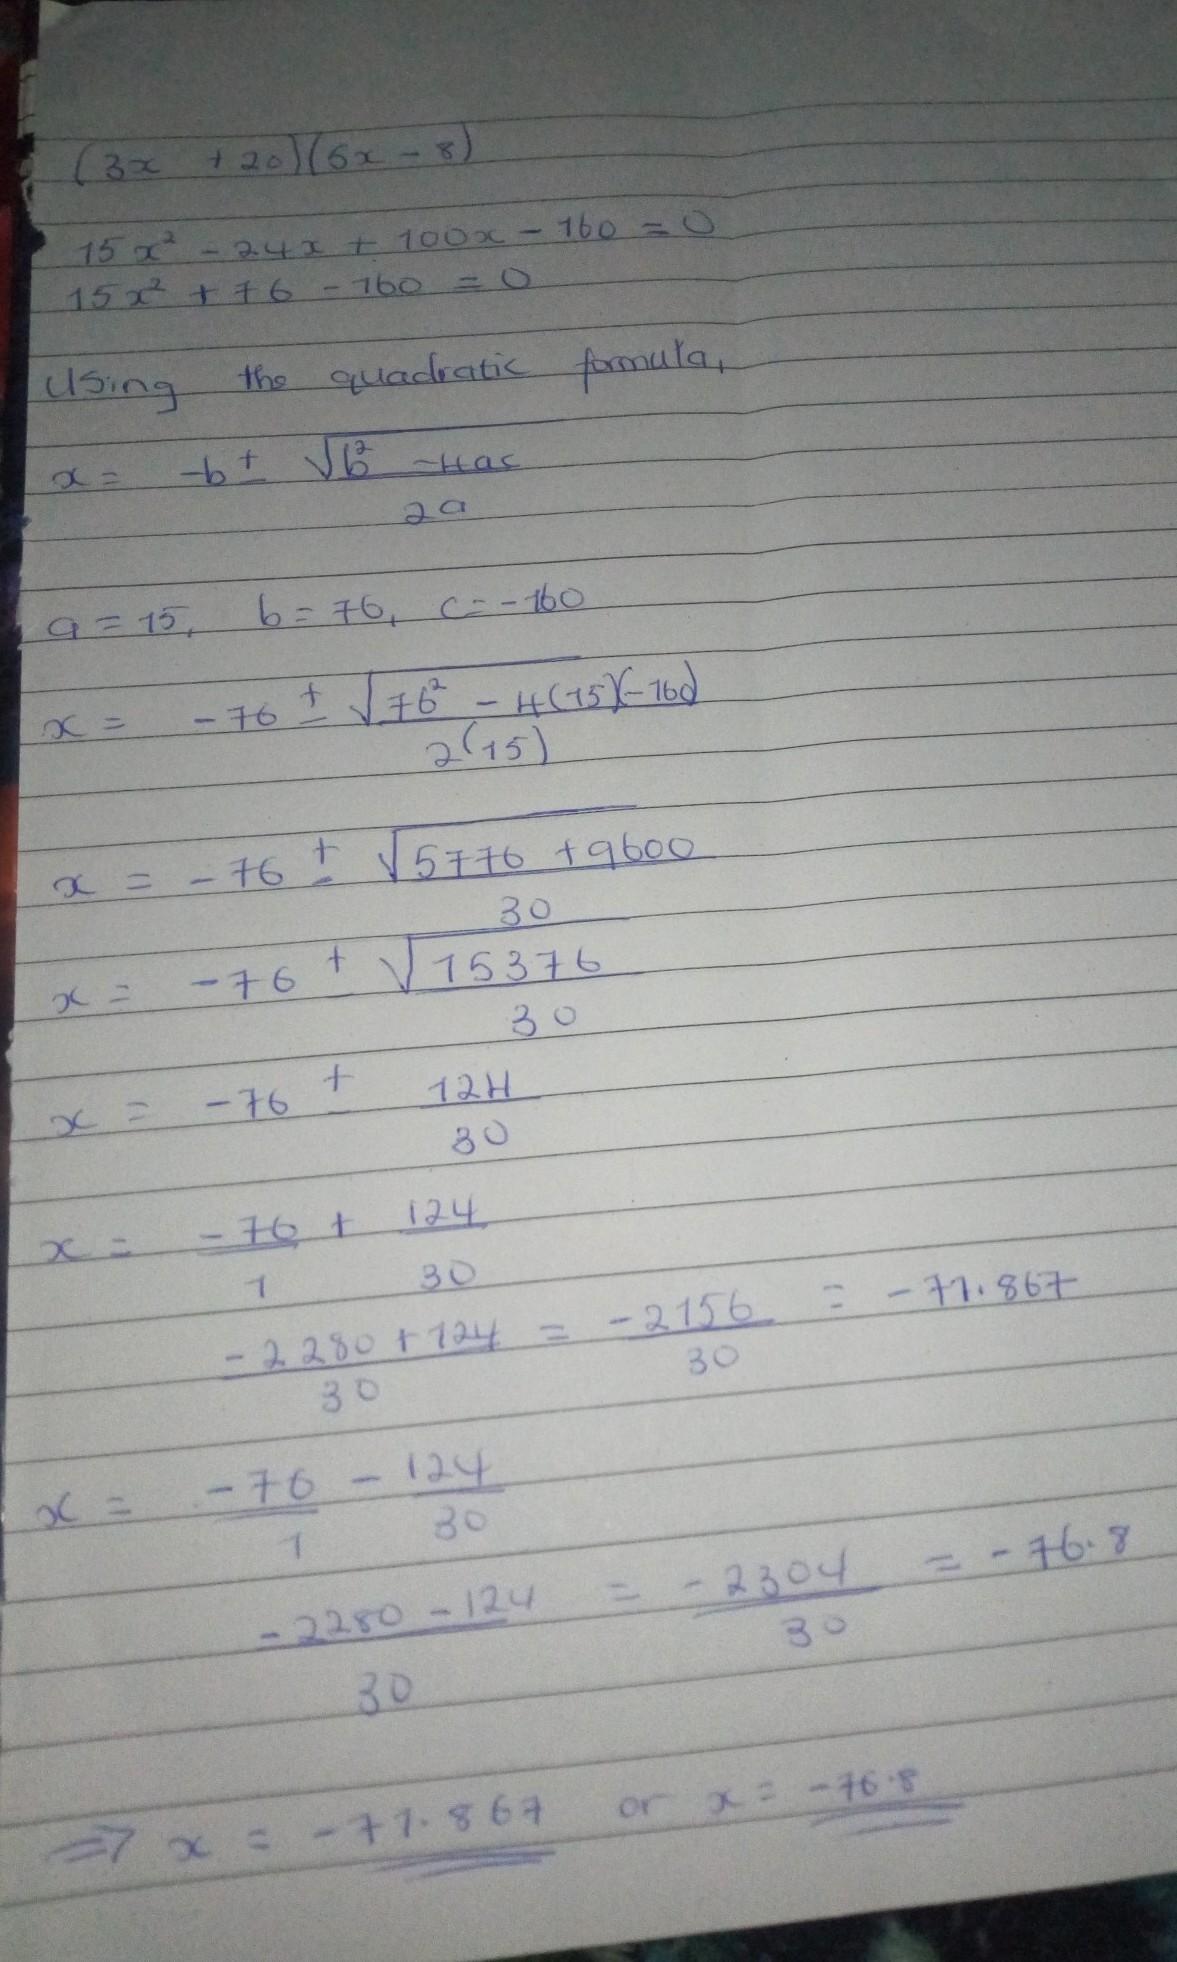 (3x + 20)(5x - 8)
15x² - 24x + 100x - 160 = 0
15x² + 76 - 160 = 0
Using the quadratic formula,
x = -b ± √b² - 4ac
2a
a = 15, b = 76, c = -160
x = -76 ± √76² - 4(15)(-160)
2(15)
x = -76 ± √5776 + 9600
30
x = -76 ± √15376
30
x = -76 ± 124
30
x = -76 + 124
1 30
-2280 + 124 = -2156 = -71.867
30 30
x = -76 - 124
1 30
-2280 - 124 = -2304 = -76.8
30 30
⇒ x = -71.867 or x = -76.8